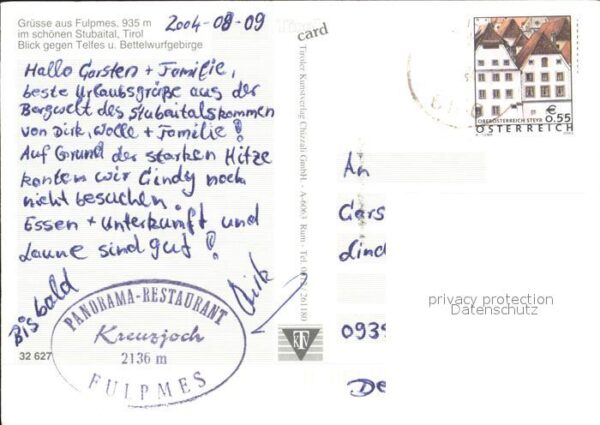 Grüsse aus Fulpmes, 935 m
im schönen Stubaital, Tirol
Blick gegen Telfes u. Bettelwurfgebirge
2004-08-09
Hallo Carsten + Familie,
beste Urlaubsgrüße aus der
Bergwelt des Stubaitals kommen
von Dirk, Wolle + Familie!
Auf Grund der starken Hitze
konten wir Cindy noch
nicht besuchen.
Essen + Unterkunft und
Laune sind gut!
Bis bald
Dirk
PANORAMA-RESTAURANT
Kreuzjoch
2136 m
FULPMES
32 627
Tirol
card
Tiroler Kunstverlag Chizzali GmbH. - A-6063 Rum - Tel. 0512/261180
KTV
€
0,55
OBERÖSTERREICH STEYR
ÖSTERREICH
An
Cars
Lind
privacy protection
Datenschutz
0939
De